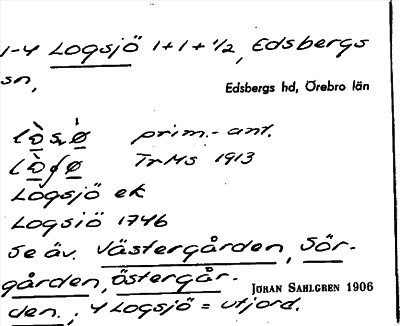 1-4 Logsjö 1+1+1/2, Edsbergs
sn,
Edsbergs hd, Örebro län
prim.- ant.
TrMs 1913
Logsjö ek
Logsiö 1746
Se äv. Västergården, Sör-
gården, Östergår-
JOHAN SAHLGREN 1906
den.; 4 Logsjö = utjord.